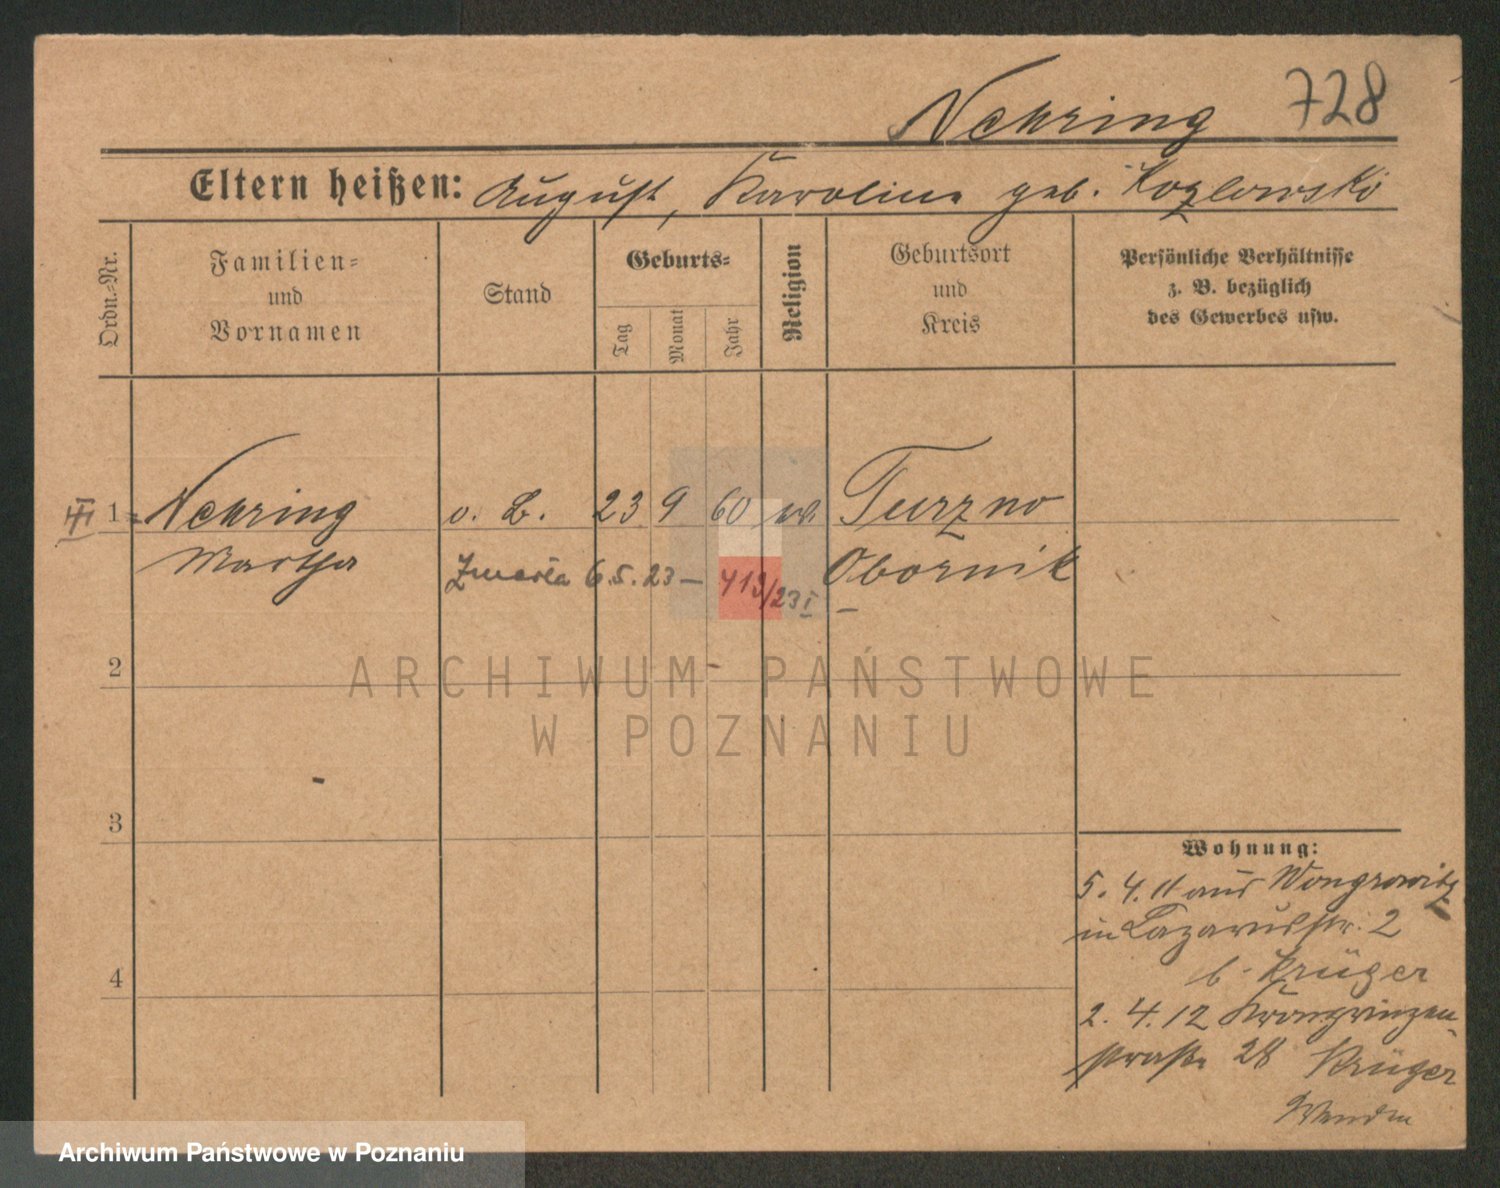 Nehring 728
Eltern heißen: August, Karoline geb. Kozlowski
Ordn.-Nr.
Familien-
und
Vornamen
Stand
Geburts-
Tag
Monat
Jahr
Religion
Geburtsort
und
Kreis
Persönliche Verhältnisse
z. B. bezüglich
des Gewerbes usw.
1 Nehring o. B. 23 9 60 ev. Turzno
Martha Obornik
Zmarła 6.5.23 — 419/23 I
2
3
4
Wohnung:
5. 4. 11 aus Wongrowitz
in Lazarusstr. 2
b. Krüger
2. 4. 12 Kronprinzen-
straße 28 Krüger
Wenden
ARCHIWUM PAŃSTWOWE
W POZNANIU
Archiwum Państwowe w Poznaniu